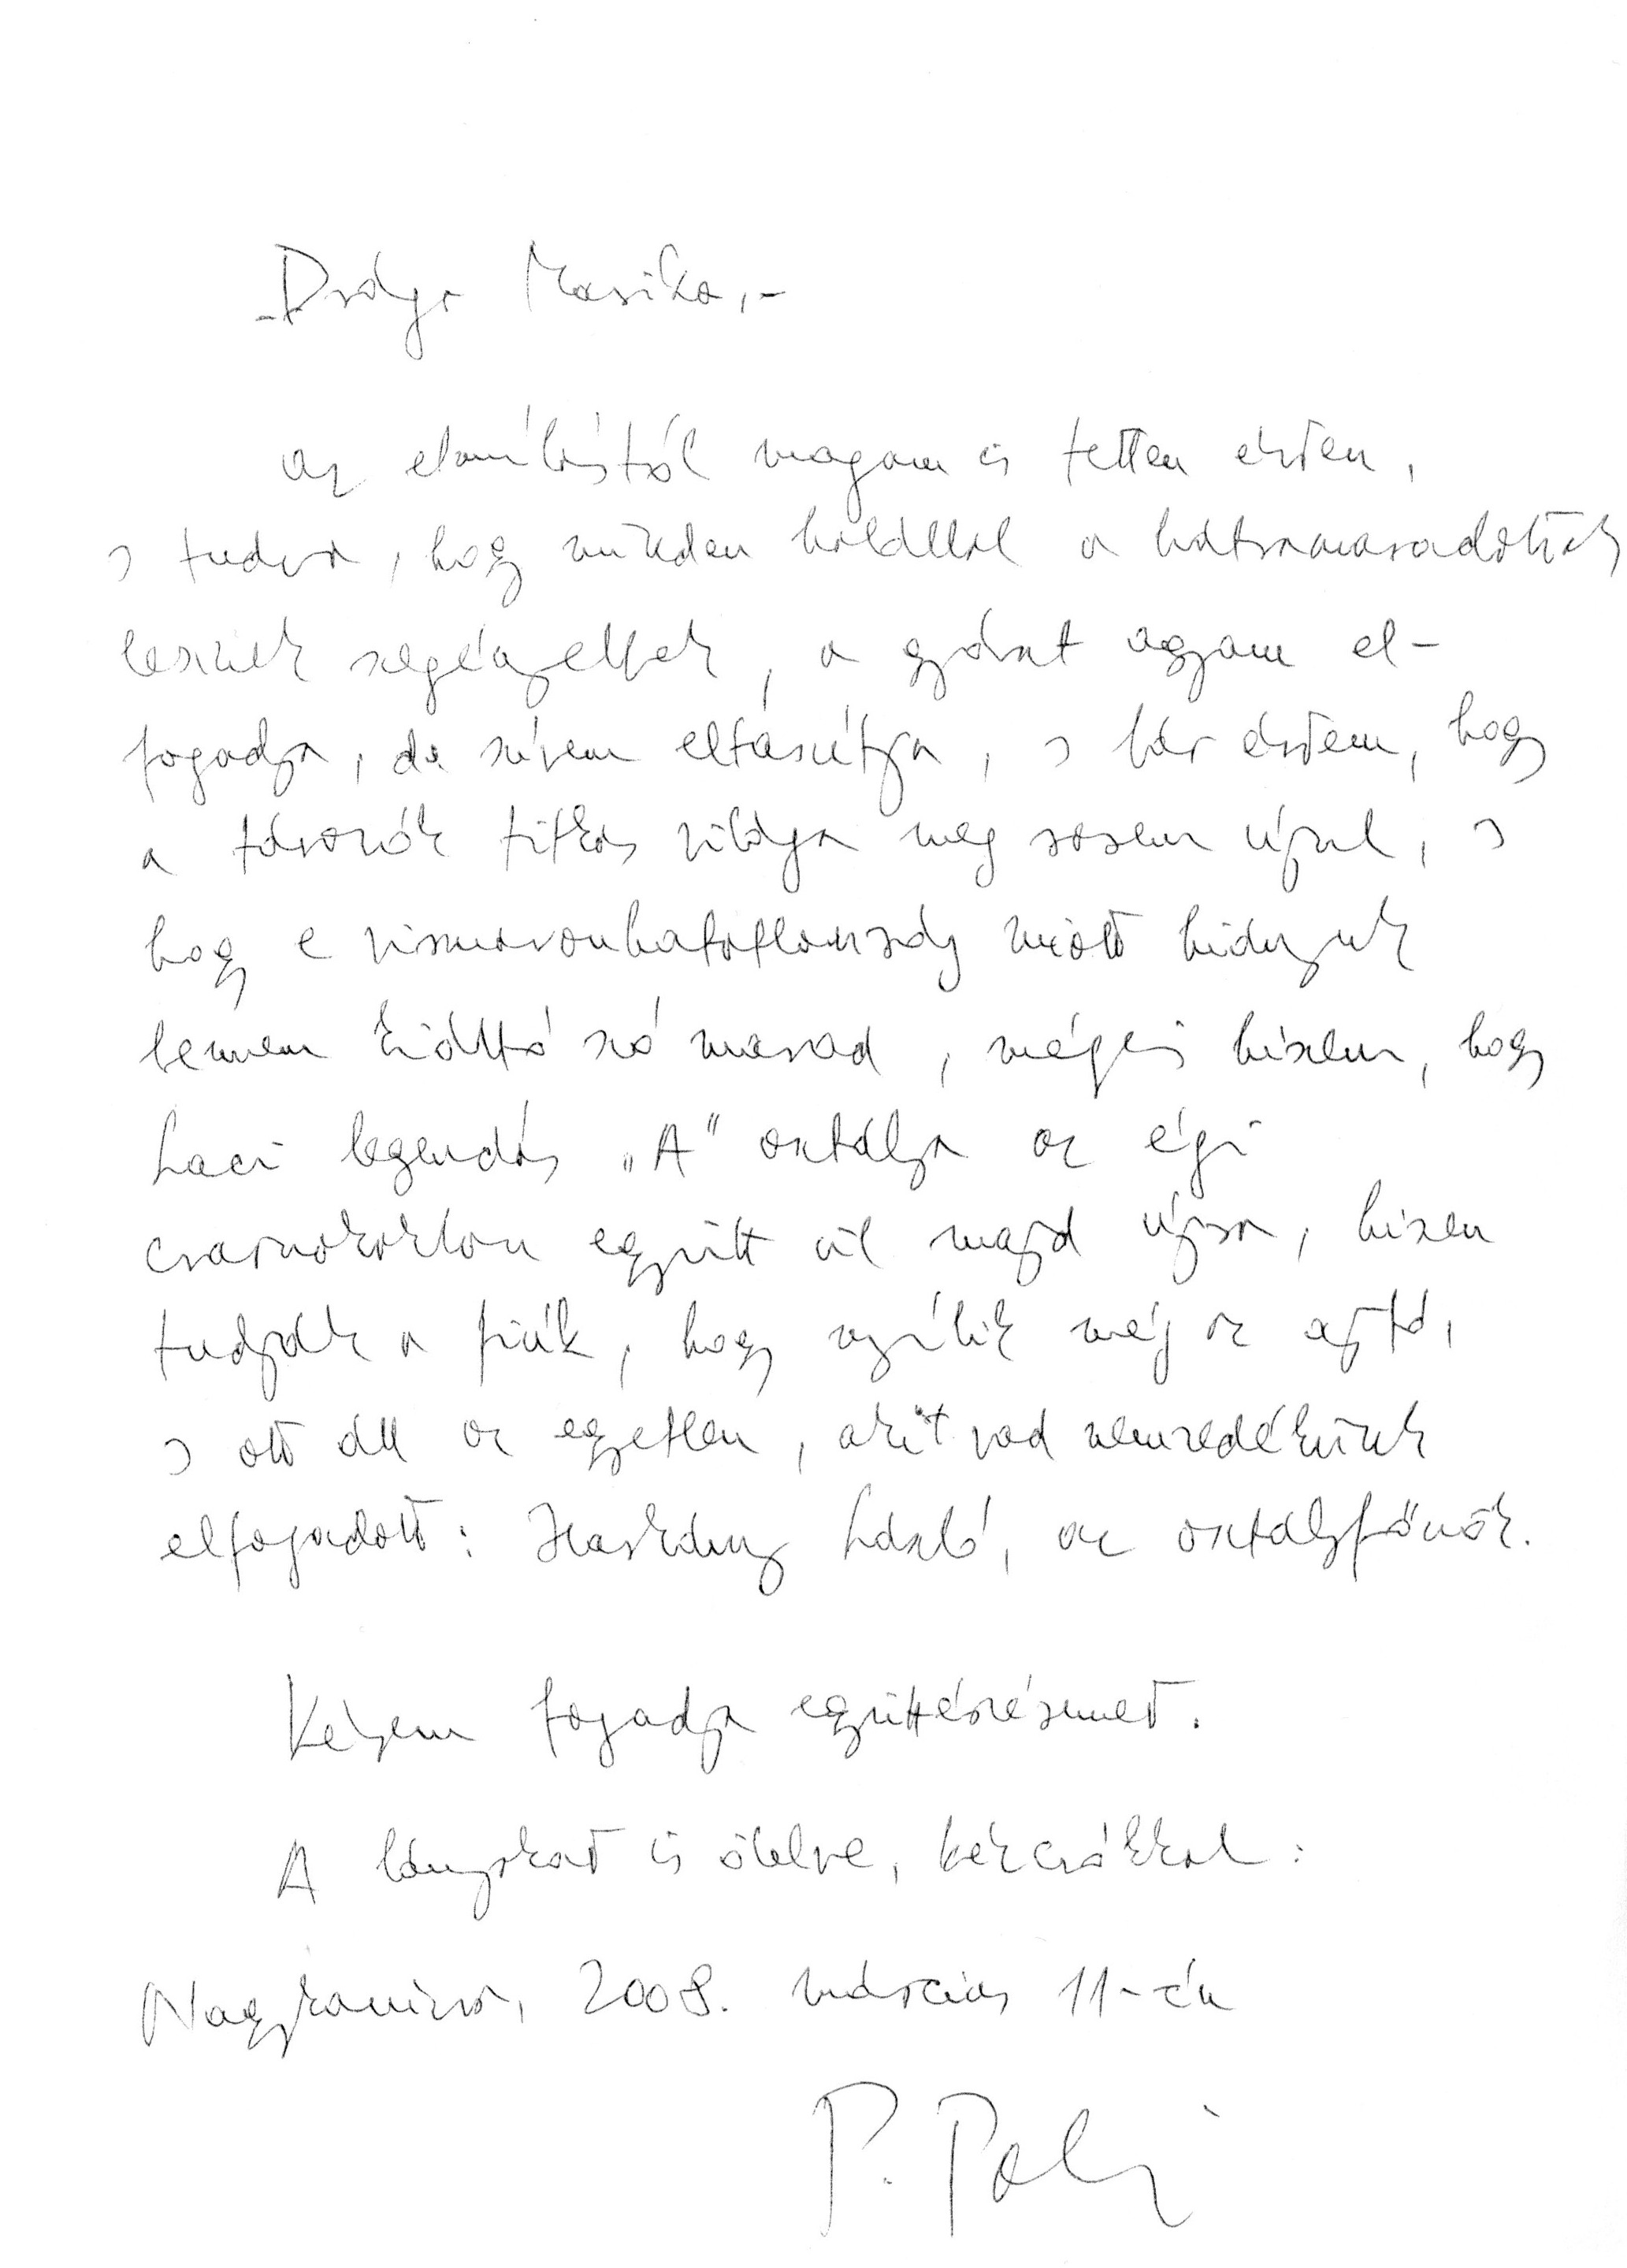 Drága Marika,-
az elmúlástól magam is tetten érten,
s tudva, hogy minden halállal a hátramaradottak
lesznek szegényebbek, a gyászt agyam el-
fogadja, de szívem eltaszítja, s bár értem, hogy
a távozók titkos világa meg sosem újul, s
hogy e visszavonhatatlanság miatt hidegnek
bennem kiáltó szó marad, mégis hiszem, hogy
Laci legendás „A" osztálya az égi
csarnokokban együtt ül majd újra, hiszen
tudják a fiúk, hogy nyílik még az ajtó,
s ott áll az egyetlen, akit vad nemzedékünk
elfogadott: Harkány László, az osztályfőnök.
Kérem fogadja együttérzésemet.
A lányokat is ölelve, kézcsókkal:
Nagykanizsa, 2008. március 11-én
P.